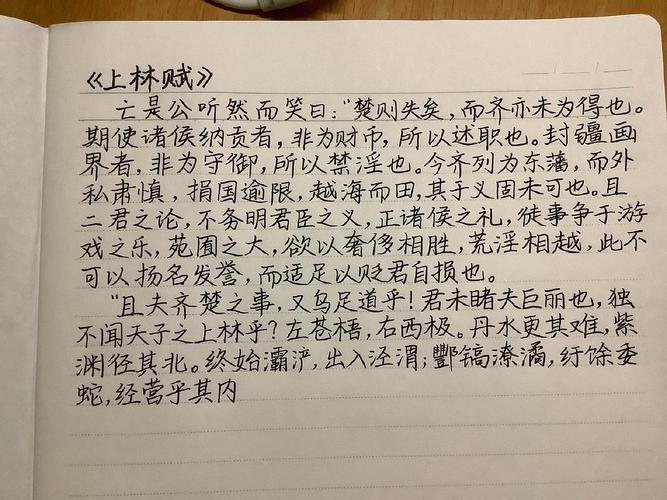 《上林赋》
亡是公听然而笑曰："楚则失矣,而齐亦未为得也。
期使诸侯纳贡者,非为财币,所以述职也。封疆画
界者,非为守御,所以禁淫也。今齐列为东藩,而外
私肃慎,捐国逾限,越海而田,其于义固未可也。且
二君之论,不务明君臣之义,正诸侯之礼,徒事争于游
戏之乐,苑囿之大,欲以奢侈相胜,荒淫相越,此不
可以扬名发誉,而适足以贬君自损也。
"且夫齐楚之事,又乌足道乎!君未睹夫巨丽也,独
不闻天子之上林乎?左苍梧,右西极。丹水更其难,紫
渊径其北。终始灞浐,出入泾渭;酆镐潦潏,纡馀委
蛇,经营乎其内